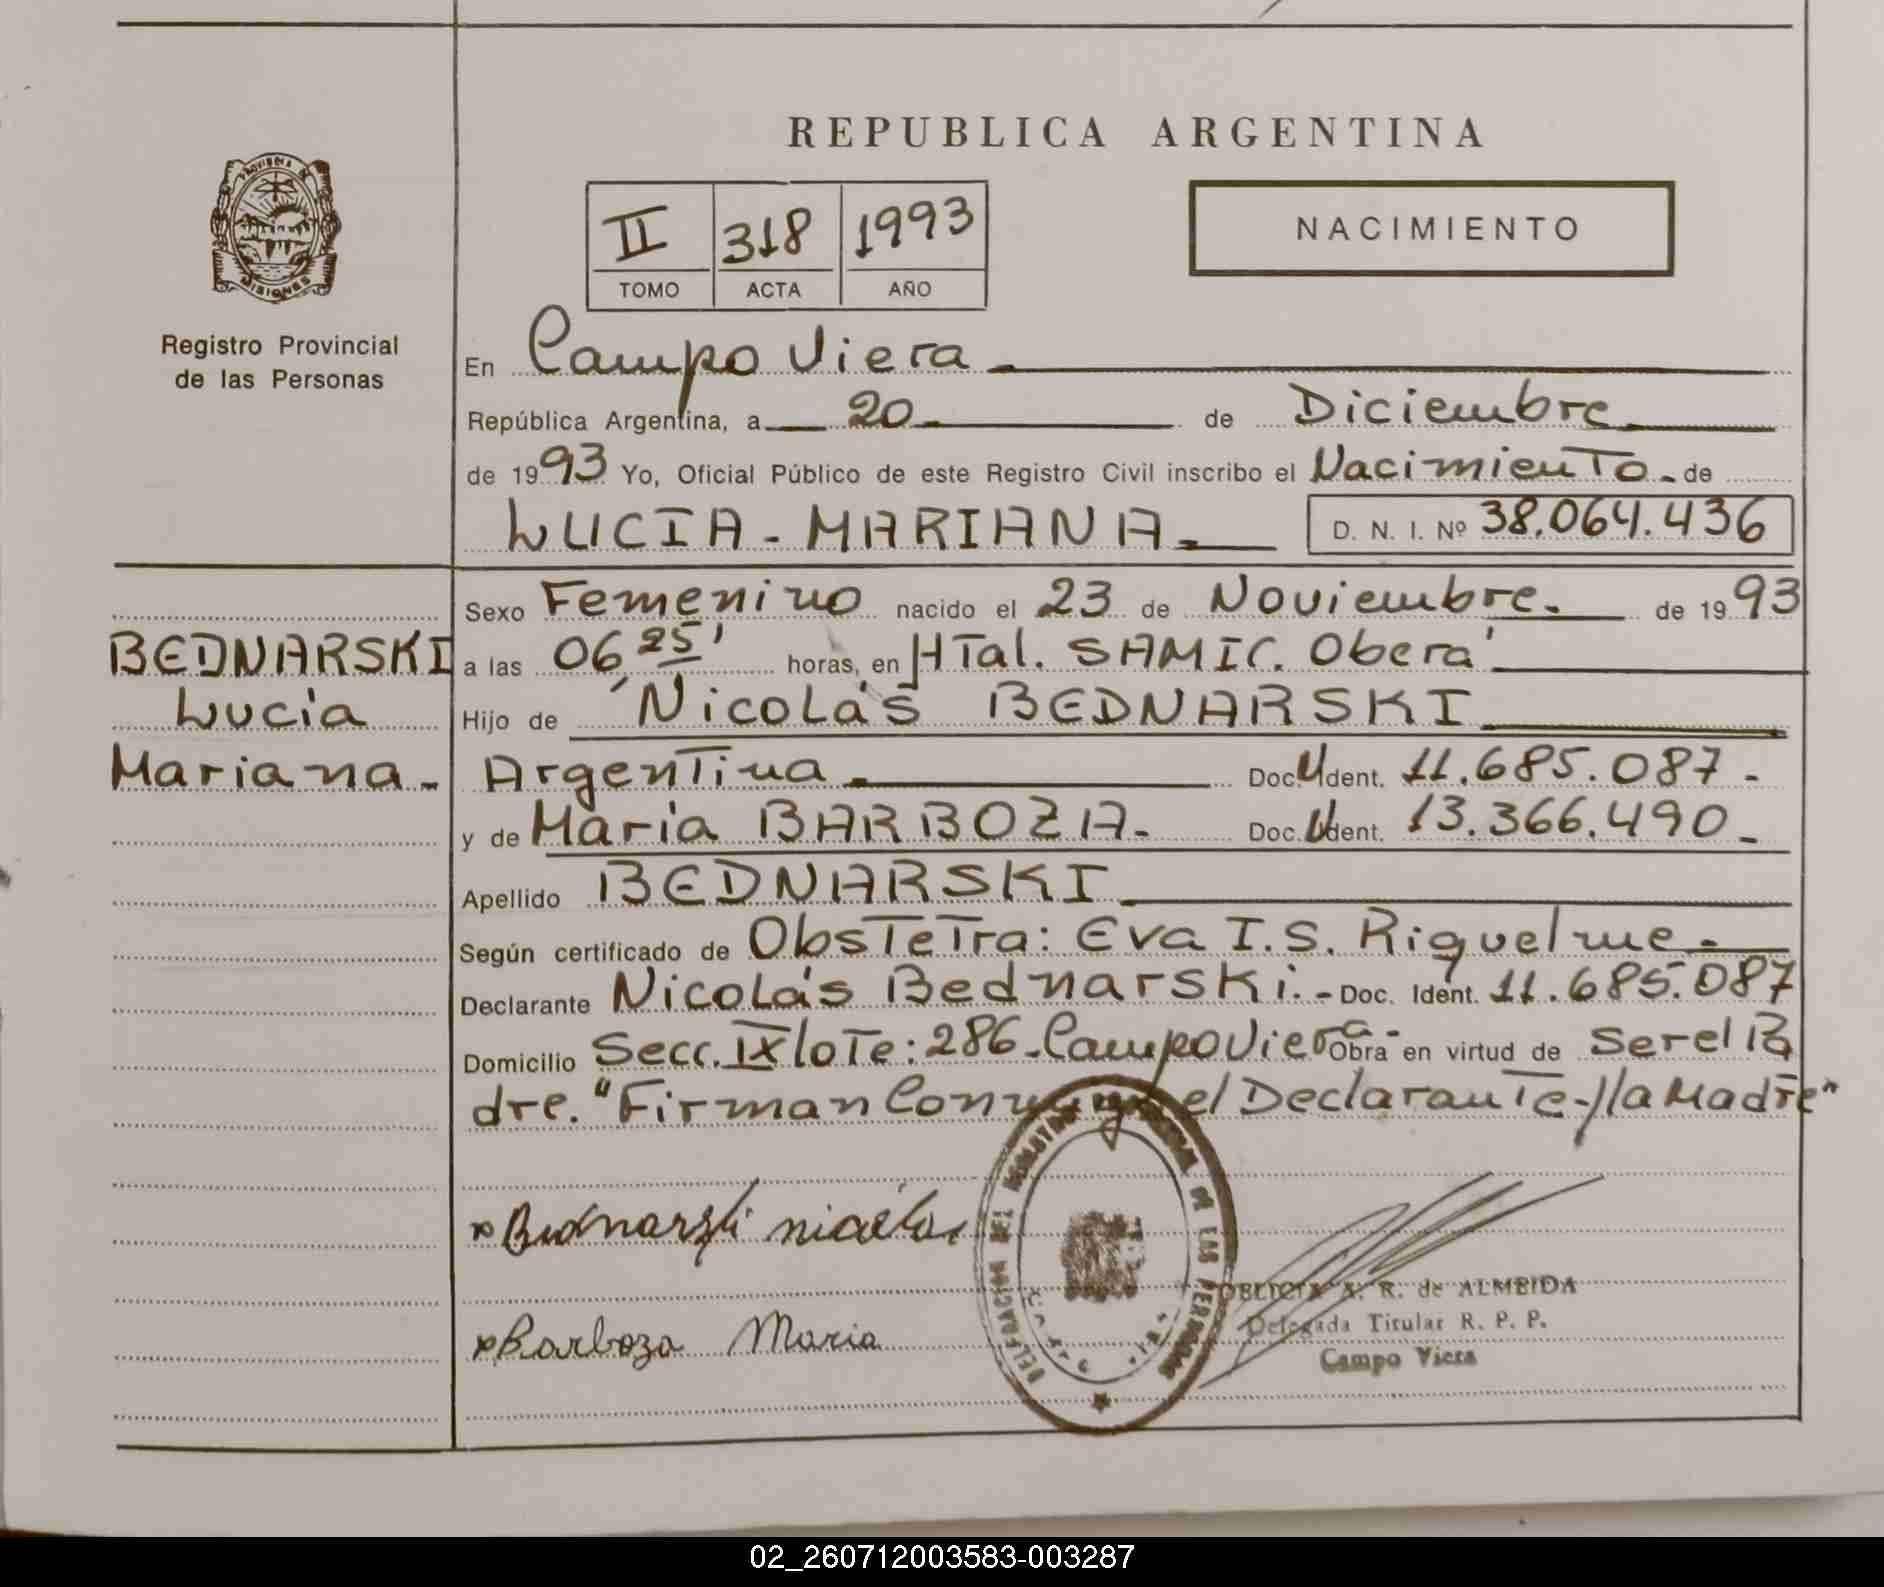 REPUBLICA ARGENTINA
PROVINCIA DE
MISIONES
Registro Provincial
de las Personas
II 318 1993
TOMO ACTA AÑO
NACIMIENTO
En Campo Viera
República Argentina, a 20 de Diciembre
de 1993 Yo, Oficial Público de este Registro Civil inscribo el Nacimiento de
LUCIA - MARIANA. D. N. I. Nº 38.064.436
BEDNARSKI
Lucia
Mariana
Sexo Femenino nacido el 23 de Noviembre. de 1993
a las 06 25' horas, en HTal. SAMIC. Oberá
Hijo de Nicolás BEDNARSKI
Argentina Doc. U Ident. 11.685.087-
y de María BARBOZA. Doc. U Ident. 13.366.490-
Apellido BEDNARSKI
Según certificado de Obstetra: Eva I.S. Riquelme.
Declarante Nicolás Bednarski.- Doc. Ident. 11.685.087
Domicilio Secc. IX lote: 286-Campo Viera- Obra en virtud de Ser el Pa
dre. "Firman Conmigo el Declarante-//la Madre"
x Bednarski nicolas
x Barboza Maria
A. R. de ALMEIDA
Delegada Titular R. P. P.
Campo Viera
02_260712003583-003287